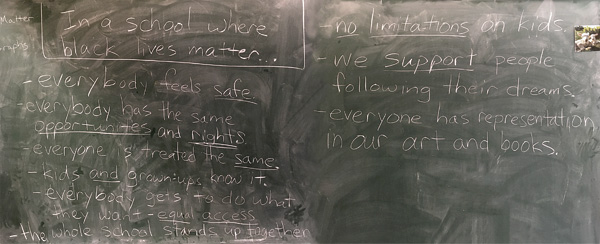 Matter
graphs
In a school where
black lives matter...
- everybody feels safe.
- everybody has the same
opportunites and rights.
- everyone is treated the same.
- kids and grown-ups know it.
- everybody gets to do what
they want - equal access
- the whole school stands up together
- no limitations on kids.
- we support people
following their dreams.
- everyone has representation
in our art and books.